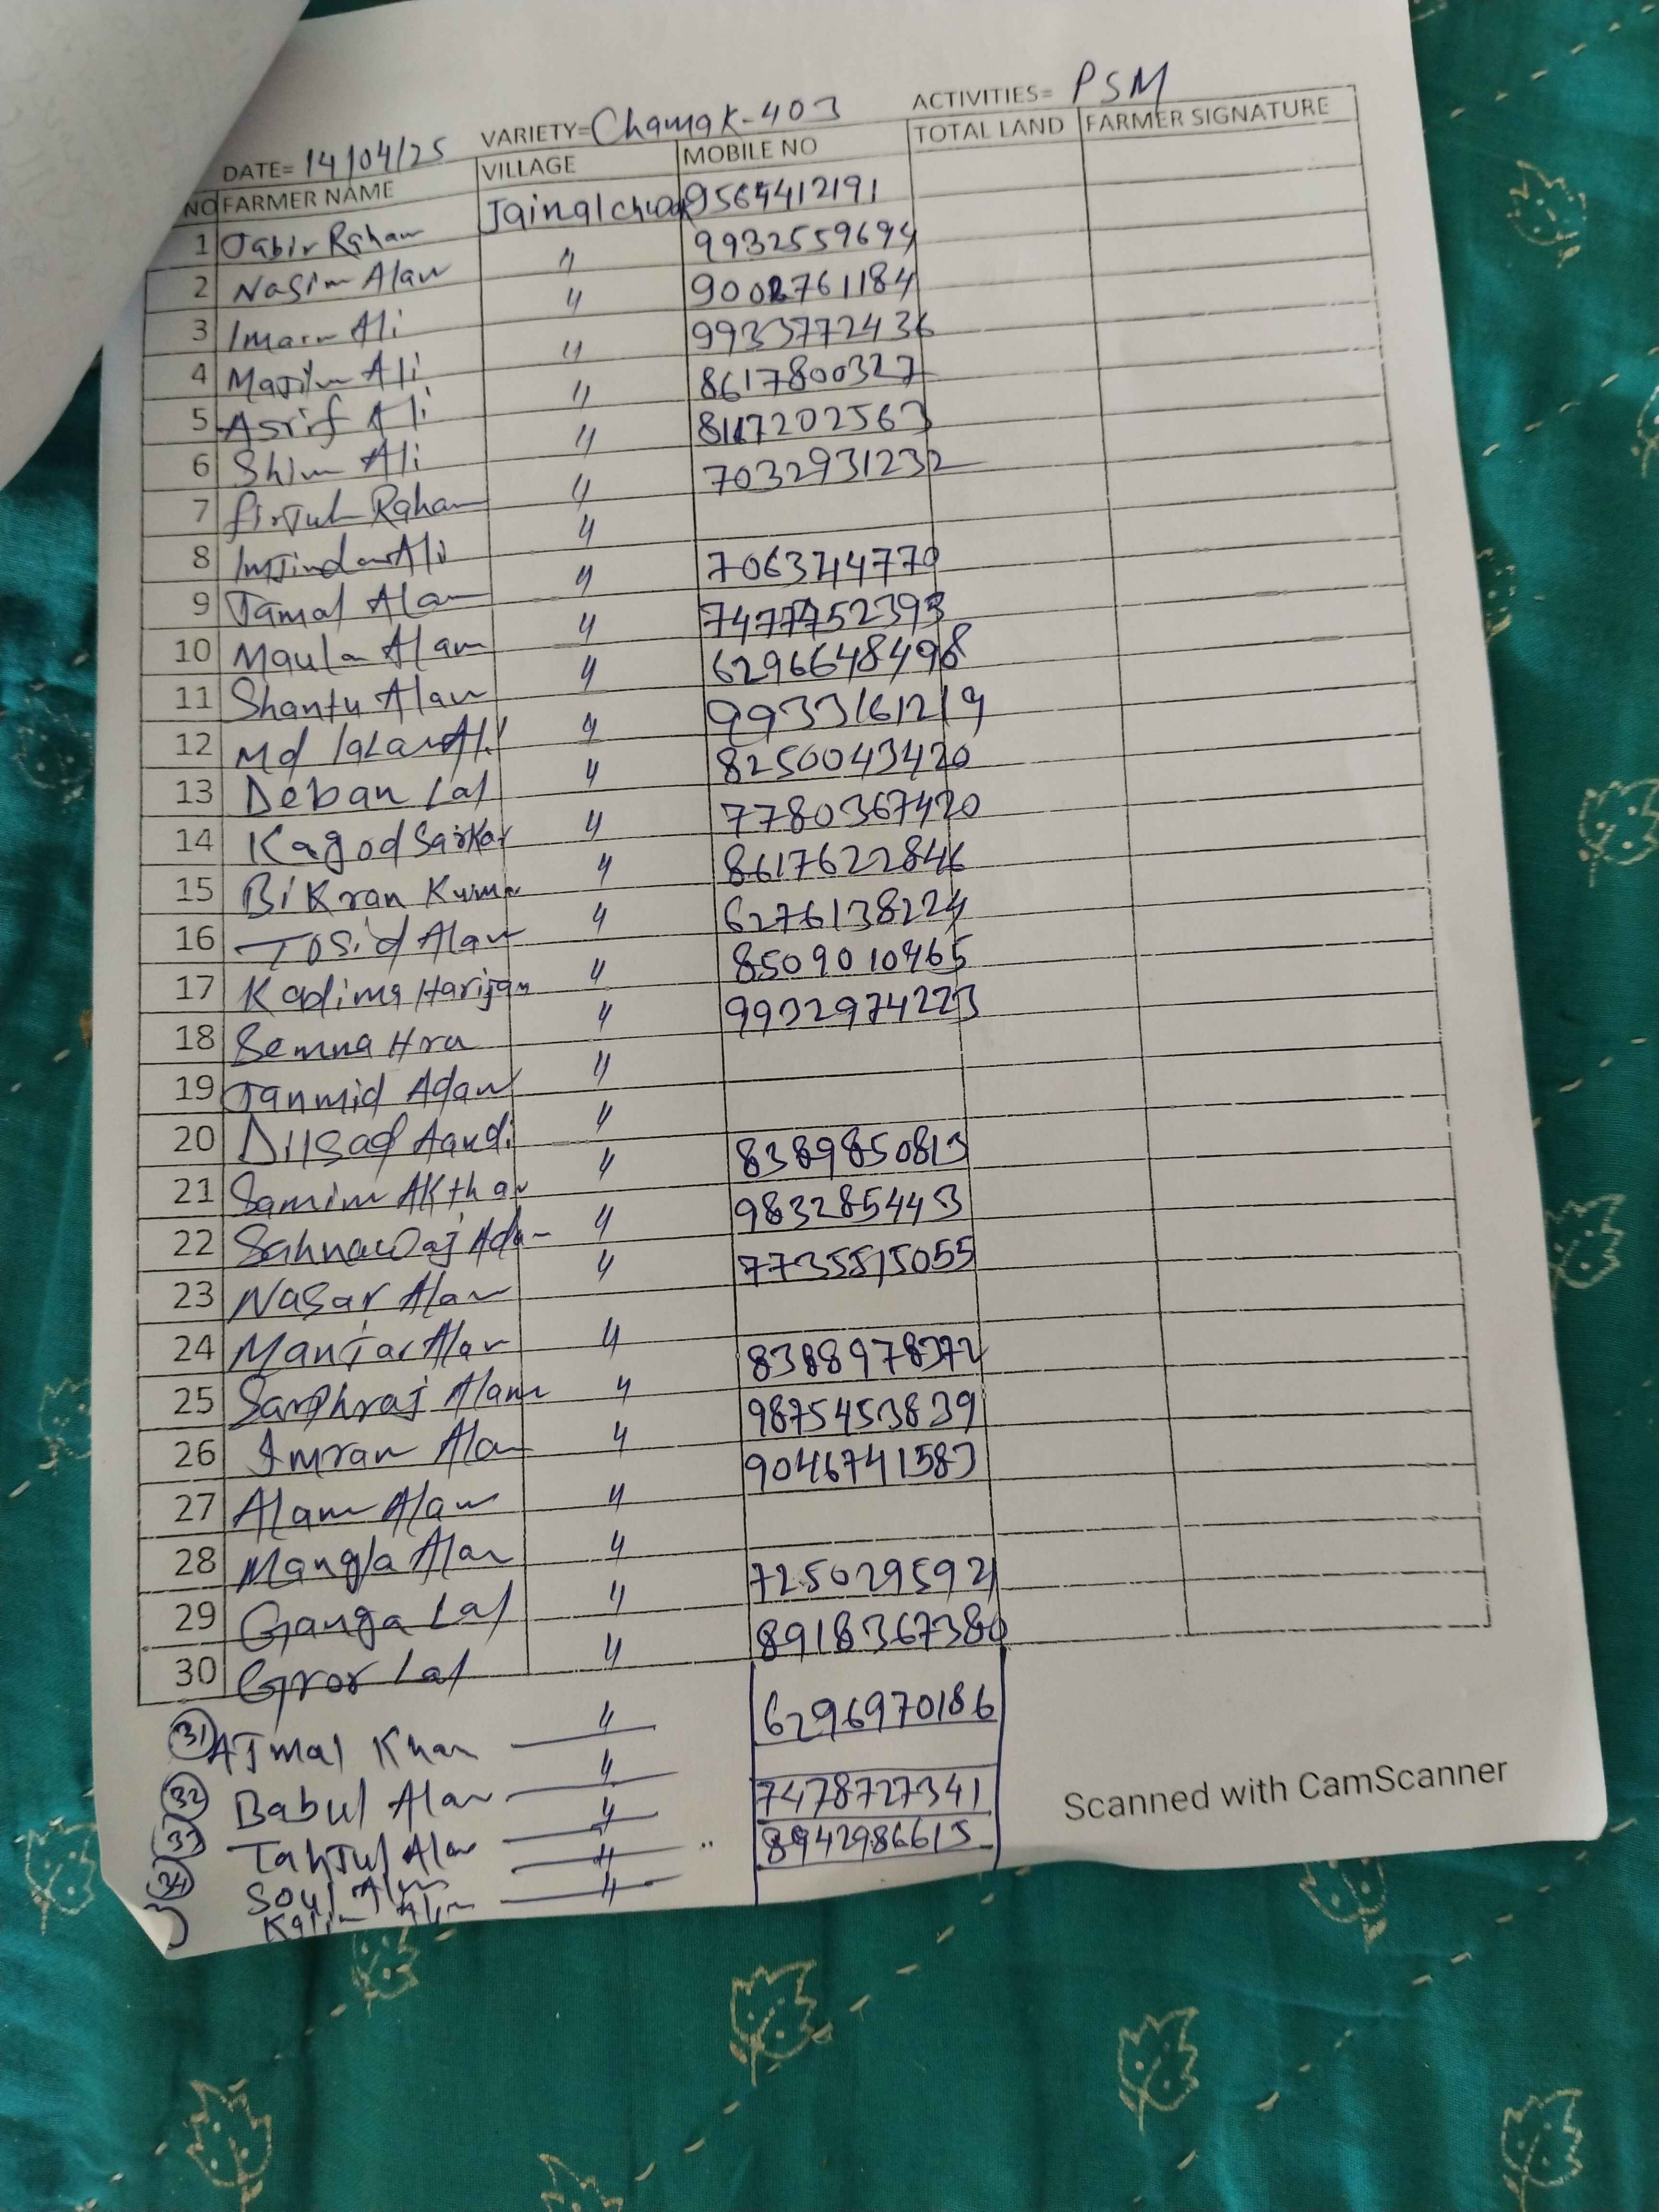 DATE= 14/04/25 VARIETY= Chamak-403 ACTIVITIES= PSM
NO FARMER NAME VILLAGE MOBILE NO TOTAL LAND FARMER SIGNATURE
1 Jabir Raham 9564412191
2 Nasim Alam " 9932559694
3 Imam Ali " 9002761184
4 Ali " 9933772436
5 Asrif Ali " 8617800327
6 Shim Ali " 8117202563
7 Raham " 7032931232
8 Ali "
9 Jamal Alam " 706344770
10 Maula Alam " 7477752393
11 Shantu Alam " 6296648498
12 Md " 9933161219
13 Deban Lal " 8250043420
14 Kagod Sarkar " 7780367420
15 Bikran Kumar " 8617622846
16 Tosid Alam " 6276138224
17 Harijan " 8509010465
18 " 9932974223
19 Tanmid Adam "
20 Dilsad "
21 Samim Akthar " 8389850813
22 Sahnawaj " 983285443
23 Nasar Alam " 7735515055
24 Alam "
25 Sarphraj Alam "
26 Imran Alam " 9875453839
27 Alam Alam " 9046741583
28 Mangla Alam "
29 Ganga Lal " 7250295921
30 Gror Lal " 8918367380
31 AJmal Khan " 6296970186
32 Babul Alam "
33 Alam " 7478727341
34 Alam " 8942986615
"
Scanned with CamScanner